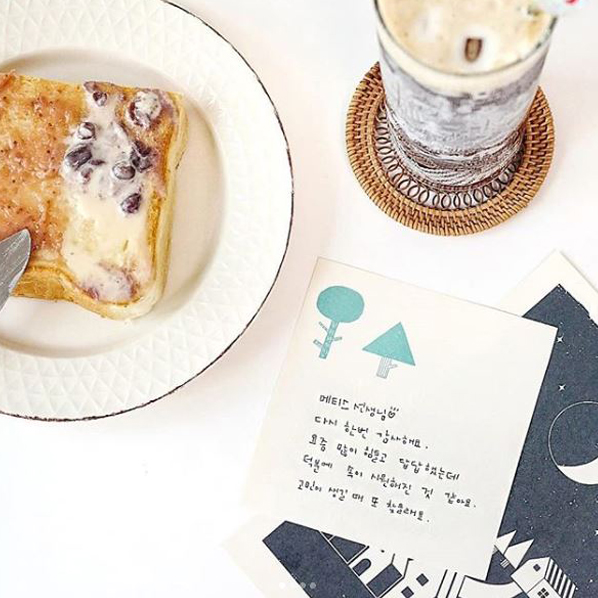 메티스 선생님
다시 한번 감사해요.
요즘 많이 힘들고 답답했는데
덕분에 속이 시원해진 것 같아요.
고민이 생길 때 또 찾을게요.